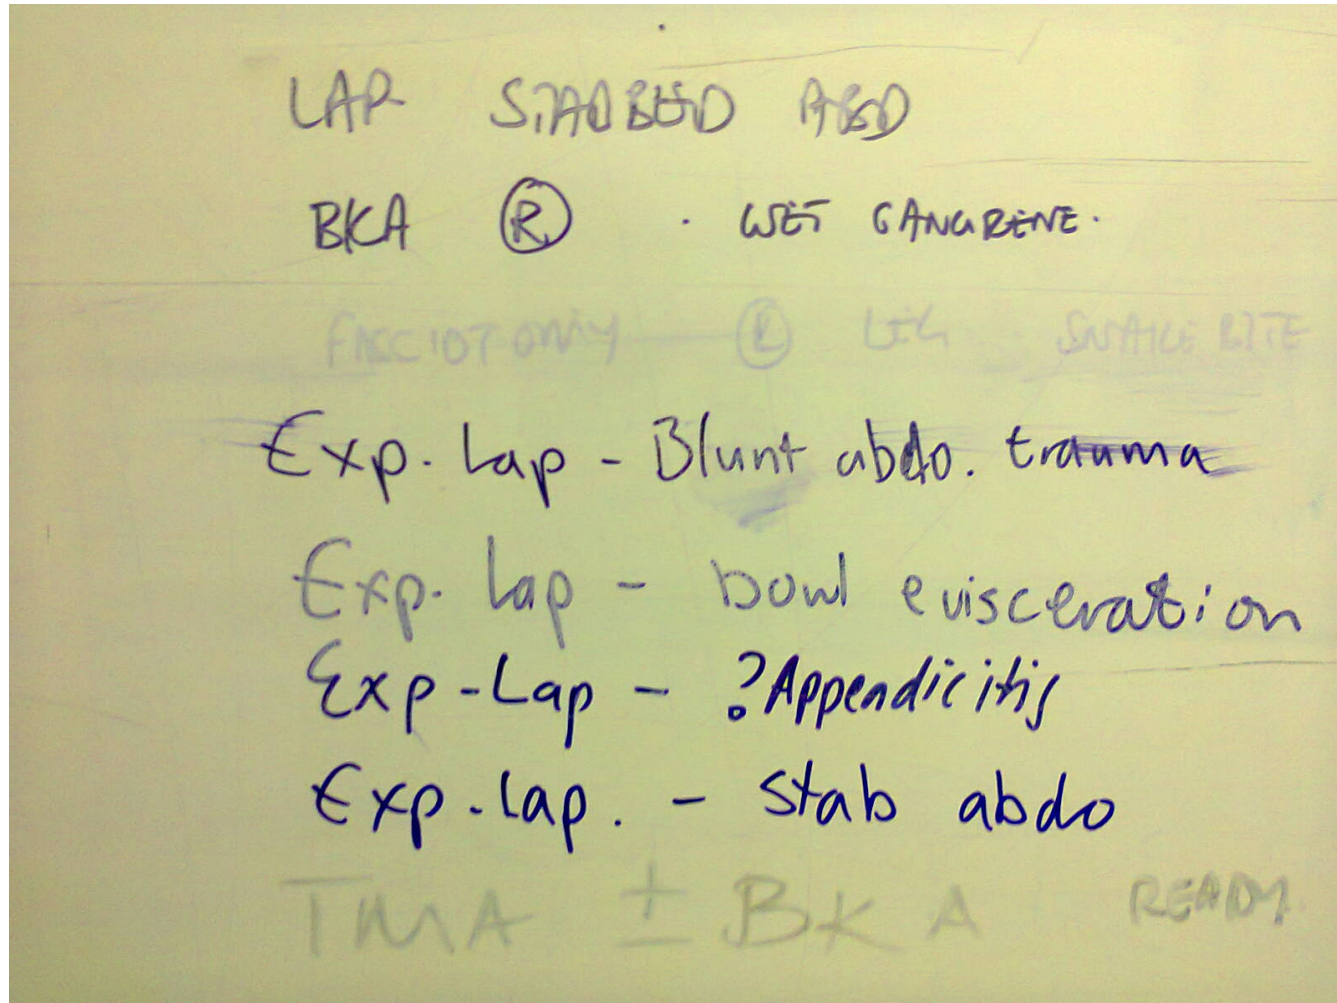 LAP STABBED ABD
BKA Ⓡ . WET GANGRENE.
FASCIOTOMY — Ⓡ LEG SNAKE BITE
Exp. Lap - Blunt abdo. trauma
Exp. Lap - bowl evisceration
Exp - Lap - ?Appendicitis
Exp. lap. - stab abdo
TMA ± BKA READY